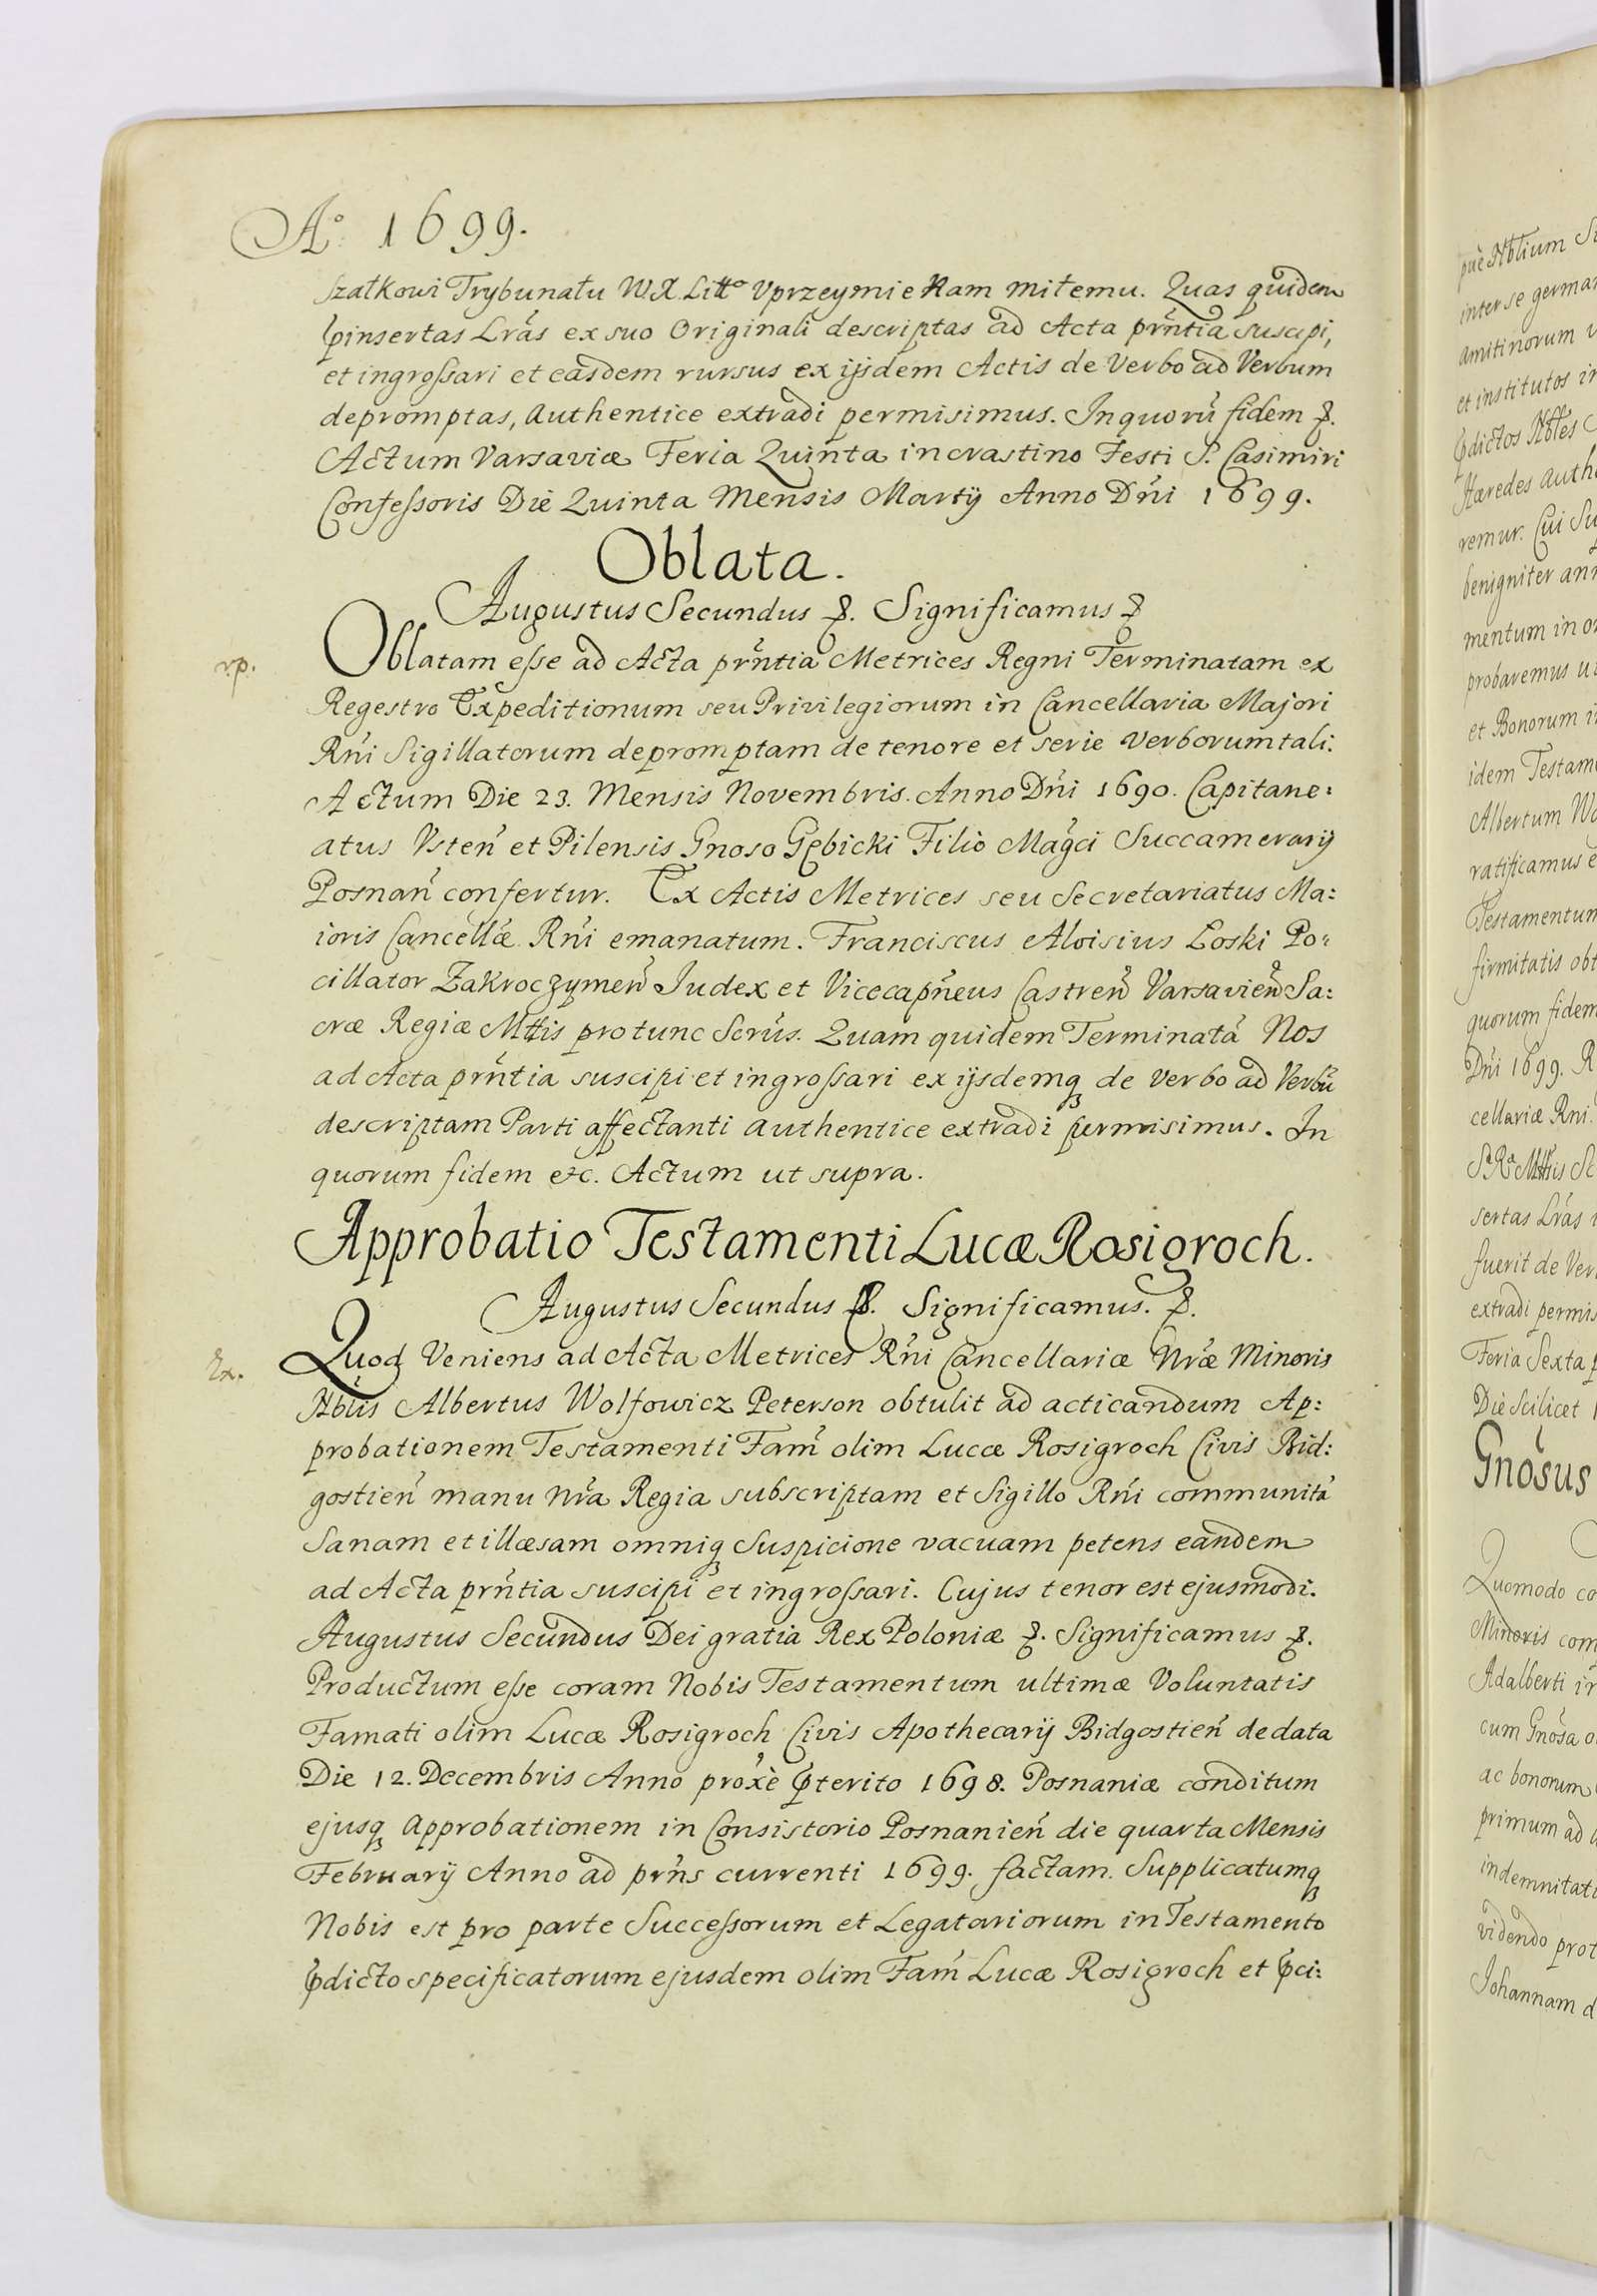 Aº 1699.
Szałkowi Trybunału WX Littº Vprzeymie Nam miłemu. Quas quidem
pinsertas Lrás ex suo Originali descriptas ad Acta prńtia suscipi,
et ingrossari et easdem rursus ex ijsdem Actis de Verbo ad Verbum
depromptas, Authentice extradi permisimus. In quorú fidem &.
Actum Varsaviæ Feria Quinta in crastino Festi S. Casimiri
Confessoris Die Quinta Mensis Martij Anno Dńi 1699.
Oblata.
Augustus Secundus &. Significamus &
rp.
Oblatam esse ad Acta prńtia Metrices Regni Terminatam ex
Regestro Expeditionum seu Privilegiorum in Cancellaria Majori
Rńi Sigillatorum depromptam de tenore et serie Verborum tali.
Actum Die 23. Mensis Novembris. Anno Dńi 1690. Capitane:
atus Vsteń et Pilensis Gnoso Gębicki Filio Magći Succamerarij
Posnań confertur. Ex Actis Metrices seu Secretariatus Ma:
ioris Cancellǽ Rńi emanatum. Franciscus Aloisius Łoski Po:
cillator Zakroczymeń Judex et Vicecapńeus Castreń Varsavień Sa:
cræ Regiæ Mttis pro tunc Scrús. Quam quidem Terminatá Nos
ad Acta prńtia suscipi et ingrossari ex ijsdemq de Verbo ad Verbú
descriptam Parti affectanti authentice extradi permisimus. In
quorum fidem etc. Actum ut supra.
Approbatio Testamenti Lucæ Rosigroch.
Augustus Secundus &. Significamus. &.
Ex.
Quod Veniens ad Acta Metrices Rńi Cancellariæ Nrǽ Minoris
Nblís Albertus Wolfowicz Peterson obtulit ad acticandum Ap:
probationem Testamenti Faḿ olim Lucæ Rosigroch Civis Bid:
gostień manu nrá Regia subscriptam et Sigillo Rńi communitá
Sanam et illæsam omniq Suspicione vacuam petens eandem
ad Acta prńtia suscipi et ingrossari. Cujus tenor est ejusmodi.
Augustus Secundus Dei gratia Rex Poloniæ &. Significamus &.
Productum esse coram Nobis Testamentum ultimæ Voluntatis
Famati olim Lucæ Rosigroch Civis Apothecarij Bidgostień de data
Die 12. Decembris Anno proxé pterito 1698. Posnaniæ conditum
ejusq Approbationem in Consistorio Posnanień die quarta Mensis
Februarij Anno ad prńs currenti 1699. factam. Supplicatumq
Nobis est pro parte Successorum et Legatariorum in Testamento
pdicto specificatorum ejusdem olim Faḿ Lucæ Rosigroch et pci:
pué Nblium
inter se
amitinorum
et institutos
pdictos Nbles
Hæredes
remur. Cui
benigniter
mentum in
probaremus
et Bonorum
idem
Albertum
ratificamus
firmitatis
quorum fidem
Dńi 1699.
cellariæ Rni.
sertas Lrás
fuerit de
extradi
Feria Sexta
Die Scilicet
Gnósus
Quomodo
Minoris
Adalberti
cum Gnosa
ac bonorum
primum ad
videndo
Johannam